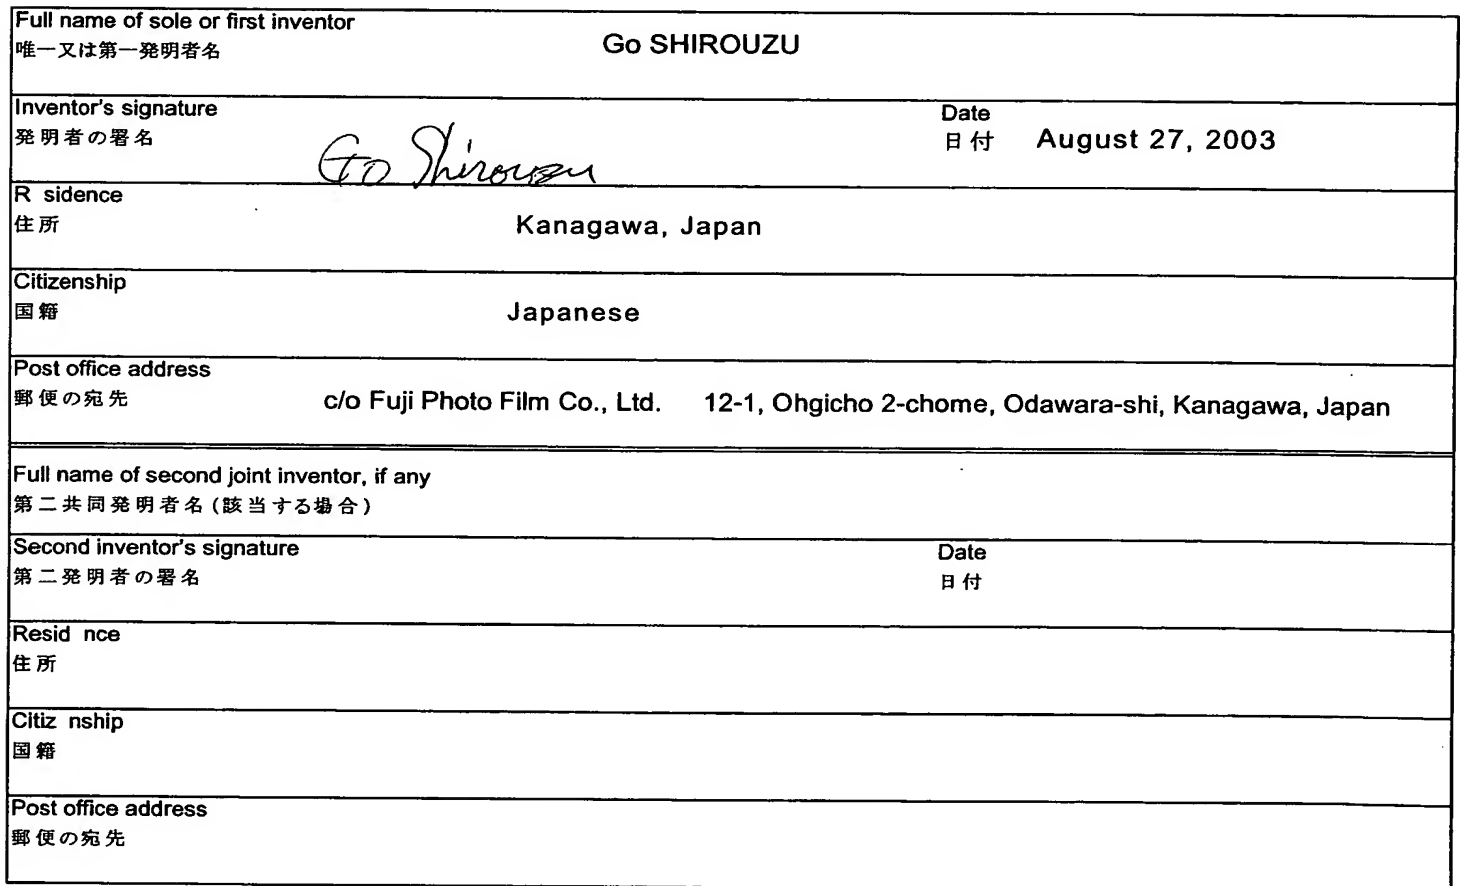 Full name of sole or first inventor
唯一又は第一発明者名 Go SHIROUZU
Inventor's signature Date
発明者の署名 Go Shirouzu 日付 August 27, 2003
R sidence
住所 Kanagawa, Japan
Citizenship
国籍 Japanese
Post office address
郵便の宛先 c/o Fuji Photo Film Co., Ltd. 12-1, Ohgicho 2-chome, Odawara-shi, Kanagawa, Japan
Full name of second joint inventor, if any
第二共同発明者名(該当する場合)
Second inventor's signature Date
第二発明者の署名 日付
Resid nce
住所
Citiz nship
国籍
Post office address
郵便の宛先